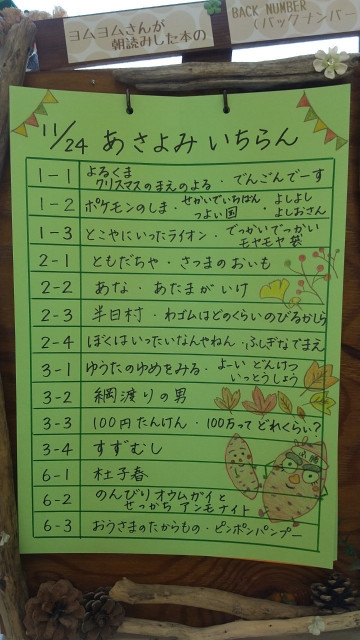 ヨムヨムさんが
朝読みした本の
BACK NUMBER
(バックナンバー
11/24 あさよみ いちらん
1-1 よるくま クリスマスのまえのよる・でんごんでーす
1-2 ポケモンのしま・せかいでいちばん つよい国・よしよし よしおさん
1-3 とこやにいったライオン・でっかいでっかい モヤモヤ袋
2-1 ともだちや・さつまのおいも
2-2 あな・あたまが いけ
2-3 半日村・わゴムはどのくらいのびるかしら
2-4 ぼくはいったいなんやねん・ふしぎなでまえ
3-1 ゆうたのゆめをみる・よーい どんけつ いっとうしょう
3-2 綱渡りの男
3-3 100円たんけん・100万って どれくらい?
3-4 すずむし
6-1 杜子春
6-2 のんびりオウムガイと せっかち アンモナイト
6-3 おうさまのたからもの・ピンポンパンプー